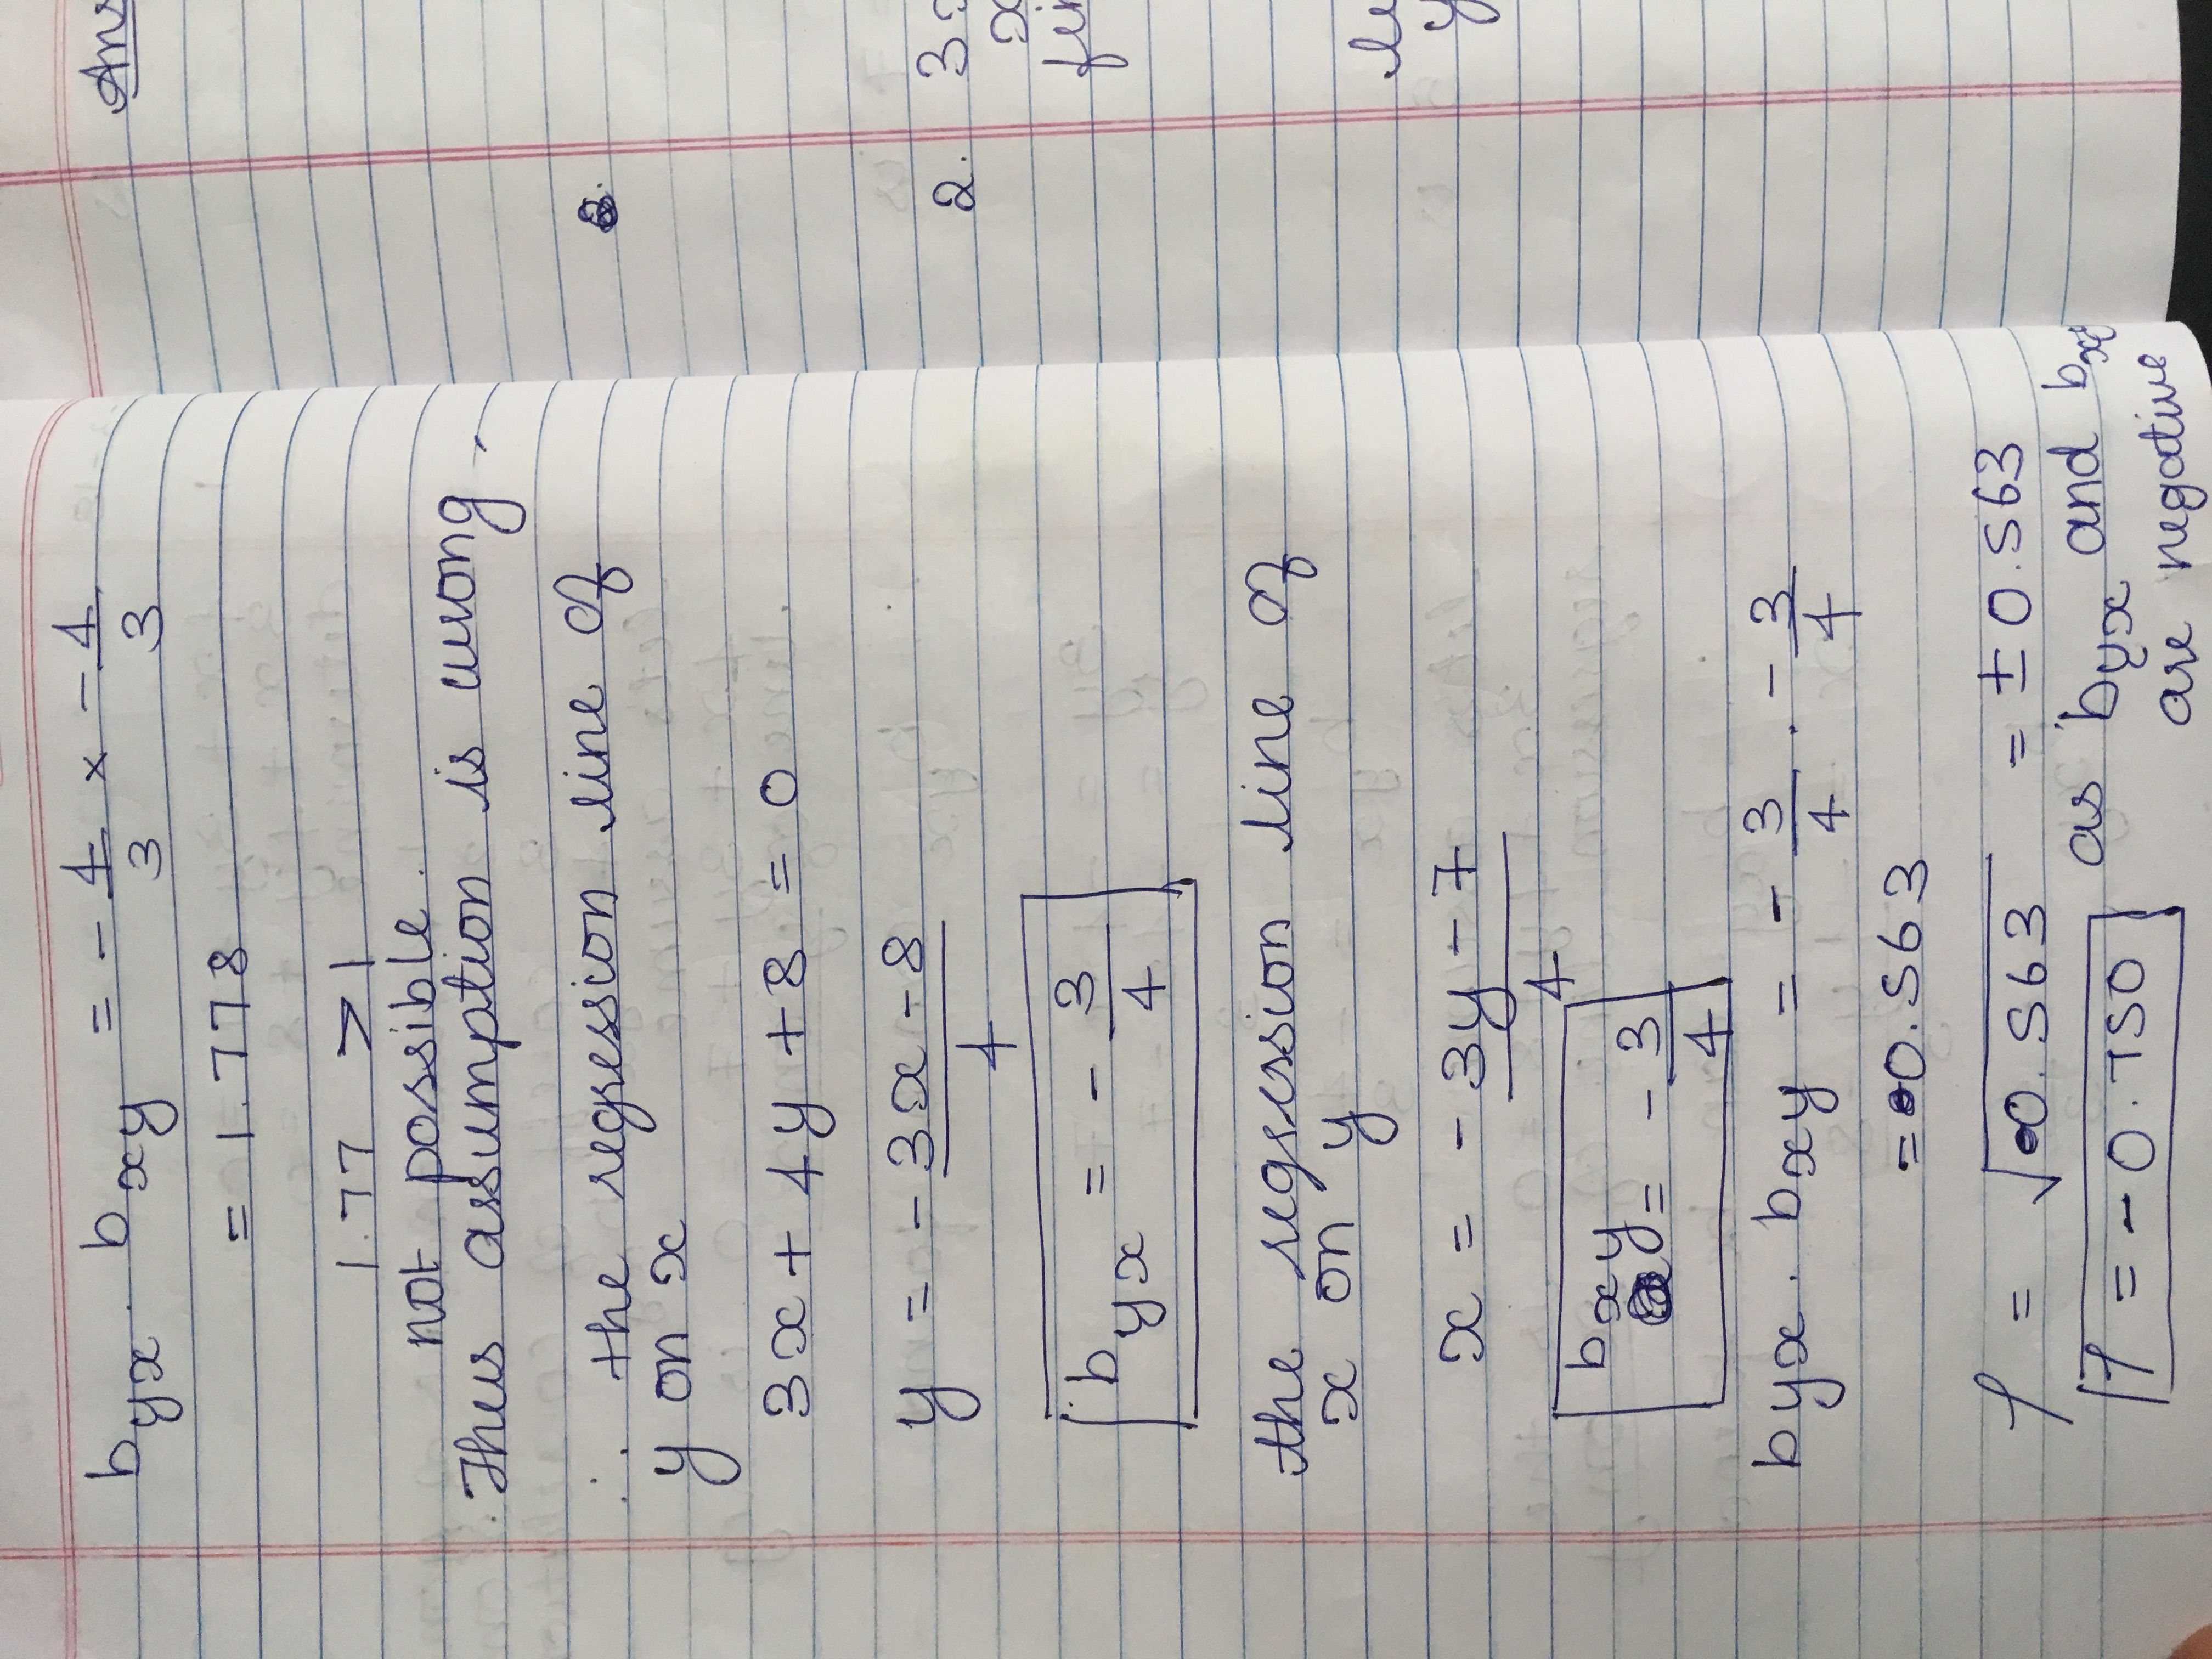 b_yx . b_xy = - 4/3 × - 4/3
= 1.778
1.77 > 1
not possible.
Thus assumption is wrong.
∴ the regression line of
y on x
3x + 4y + 8 = 0
y = - 3x - 8 / 4
b_yx = - 3/4
the regression line of
x on y
x = - 3y - 7 / 4
b_xy
= - 3/4
b_yx . b_xy = - 3/4 . - 3/4
= 0.563
r = √0.563 = ± 0.563
r = -0.750 as b_yx and b_xy
are negative
Ans
2.
2. 3x
x
y